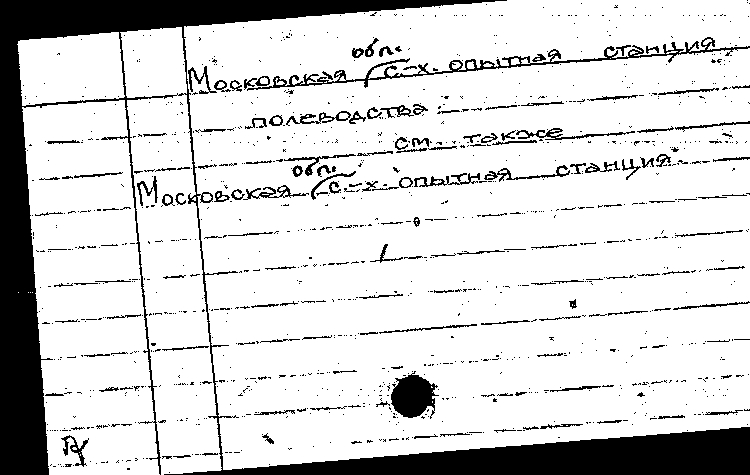 Московская обл. с.-х. опытная станция
полеводства
см. также
Московская обл. с.-х. опытная станция.